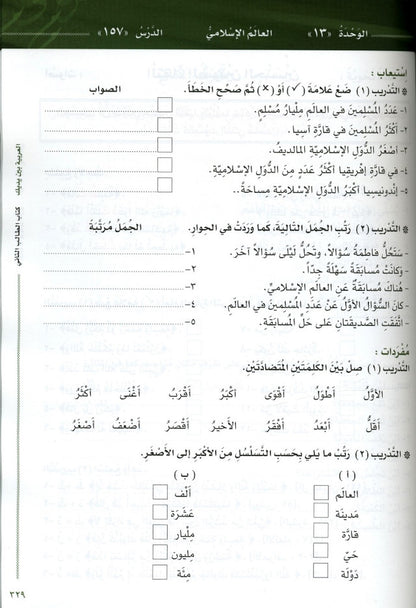 الوَحْدَةُ «١٣» العالَمُ الإسْلاميُّ الدَّرْسُ «١٥٧»
اسْتيعاب :
❊ التَّدْريب (١) ضَعْ عَلامَةَ (✓) أوْ (×) ثُمَّ صَحِّحِ الخَطَأ. الصواب
١- عَدَدُ المُسْلِمينَ في العالَمِ مِلْيارُ مُسْلِمٍ.
٢- أكْثَرُ المُسْلِمينَ في قارَّةِ آسِيا.
٣- أصْغَرُ الدُّوَلِ الإسْلامِيَّةِ المالديف.
٤- في قارَّةِ إفْريقِيا أكْثَرُ عَدَدٍ مِنَ الدُّوَلِ الإسْلامِيَّةِ.
٥- إندونيسِيا أكْبَرُ الدُّوَلِ الإسْلامِيَّةِ مِساحَةً..
❊ التَّدْريب (٢) رَتِّبِ الجُمَلَ التَّالِيَةَ، كَما وَرَدَتْ في الحِوارِ. الجُمَلُ مُرَتَّبَة
- سَتَحُلُّ فاطِمَةُ سُؤالاً، وتَحُلُّ لَيْلَى سُؤالاً آخَرَ. ١-
- وَكانَتْ مُسابَقَةً سَهْلَةً جِدّاً. ٢-
- هُناكَ مُسابَقَةٌ عَنِ العالَمِ الإسْلاميِّ. ٣-
- كانَ السُّؤالُ الأوَّلُ عَنْ عَدَدِ المُسْلِمينَ في العالَمِ. ٤-
- اتَّفَقَتِ الصَّديقَتانِ عَلى حَلِّ المُسابَقَةِ. ٥-
مُفْرَدات :
التَّدْريب (١) صِلْ بَيْنَ الكَلِمَتَيْنِ المُتَضادَّتَيْنِ.
الأوَّلُ أطْوَلُ أقْوَى أكْبَرُ أقْرَبُ أغْنَى أكْثَرُ
أقَلُّ أبْعَدُ أفْقَرُ الأخيرُ أقْصَرُ أضْعَفُ أصْغَرُ
❊ التَّدْريب (٢) رَتِّبْ ما يَلي بِحَسَبِ التَّسَلْسُلِ مِنَ الأكْبَرِ إلى الأصْغَرِ.
( أ ) ( ب )
العالَم ألْف
مَدينَة عَشَرَة
قارَّة مِلْيار
حَيّ مِلْيون
دَوْلَة مِئَة
العربية بين يديك كتاب الطالب الثاني
٣٢٩